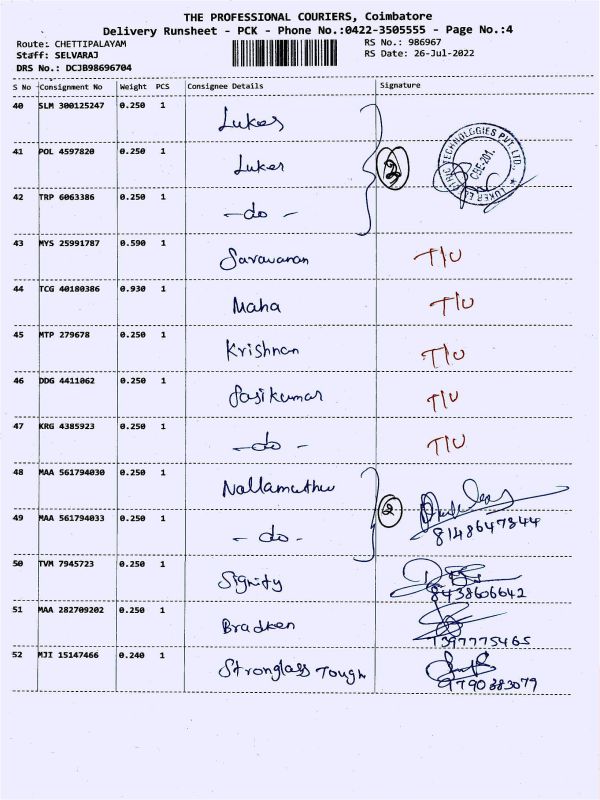 THE PROFESSIONAL COURIERS, Coimbatore
Delivery Runsheet - PCK - Phone No.:0422-3505555 - Page No.:4
Route: CHETTIPALAYAM
RS No.: 986967
Staff: SELVARAJ
RS Date: 26-Jul-2022
DRS No.: DCJB98696704
S No Consignment No Weight PCS Consignee Details Signature
40 SLM 300125247 0.250 1 Luker
41 POL 4597820 0.250 1 Luker 2
LUKER ELECTRIC TECHNOLOGIES PVT. LTD. ★
CBE-201.
42 TRP 6063386 0.250 1 - do -
43 MYS 25991787 0.590 1 Saravanan T/U
44 TCG 40180386 0.930 1 Maha T/U
45 MTP 279678 0.250 1 Krishnan T/U
46 DDG 4411062 0.250 1 Sasikumar T/U
47 KRG 4385923 0.250 1 - do - T/U
48 MAA 561794030 0.250 1 Nallamuthu 2
49 MAA 561794033 0.250 1 - do - 8148647344
50 TVM 7945723 0.250 1 Signify 8438606642
51 MAA 282709202 0.250 1 Bradken 7397775465
52 MJI 15147466 0.240 1 Stronglass Tough 9790383079